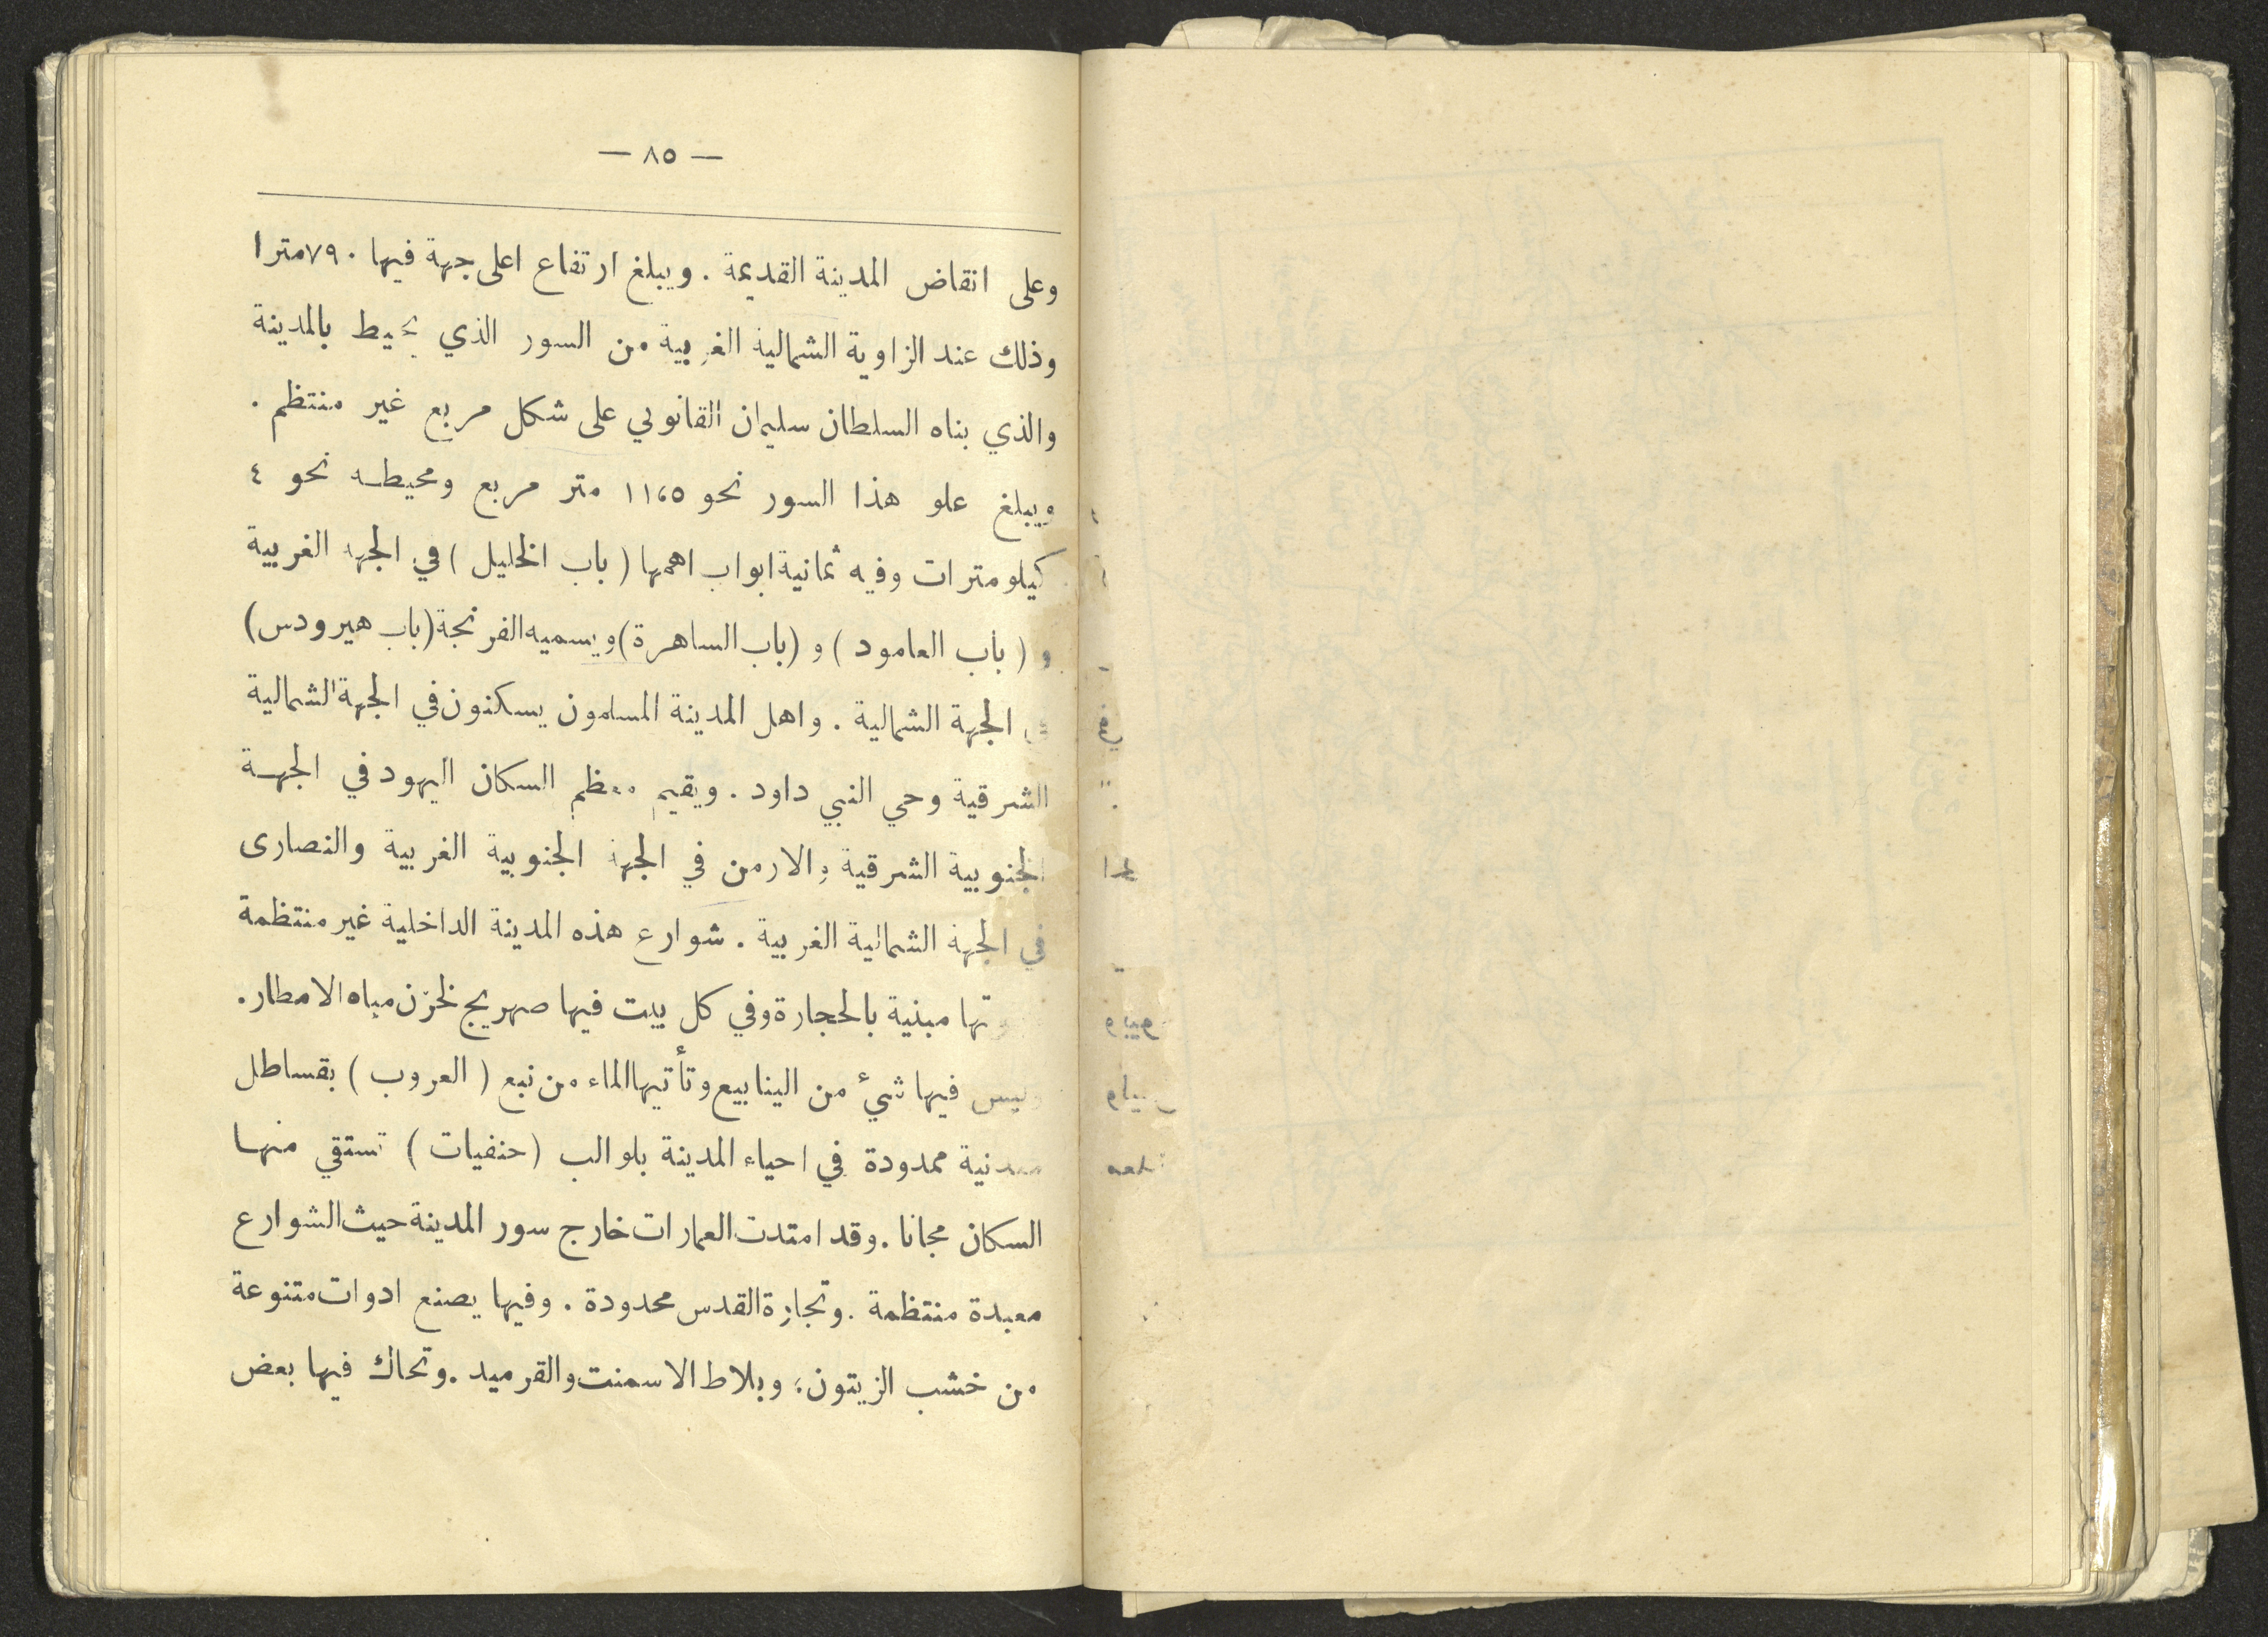 — ٨٥ —
وعلى انقاض المدينة القديمة . ويبلغ ارتفاع اعلى جهة فيها ٧٩٠ مترا
وذلك عند الزاوية الشمالية الغربية من السور الذي يحيط بالمدينة
والذي بناه السلطان سليمان القانوني على شكل مربع غير منتظم .
ويبلغ علو هذا السور نحو ١١،٥ متر مربع ومحيطه نحو ٤
كيلو مترات وفيه ثمانية ابواب اهمها ( باب الخليل ) في الجهة الغربية
و ( باب العامود ) و (باب الساهرة) ويسميه الفرنجة (باب هيرودس)
في الجهة الشمالية . واهل المدينة المسلمون يسكنون في الجهة الشمالية
الشرقية وحي النبي داود . ويقيم معظم السكان اليهود في الجهة
الجنوبية الشرقية والارمن في الجهة الجنوبية الغربية والنصارى
في الجهة الشمالية الغربية . شوارع هذه المدينة الداخلية غير منتظمة
وبيوتها مبنية بالحجارة وفي كل بيت فيها صهريج لخزن مياه الامطار .
وليس فيها شيء من الينابيع وتأتيها الماء من نبع ( العروب ) بقساطل
معدنية ممدودة في احياء المدينة بلوالب (حنفيات ) تستقي منها
السكان مجانا . وقد امتدت العمارات خارج سور المدينة حيث الشوارع
معبدة منتظمة . وتجارة القدس محدودة . وفيها يصنع ادوات متنوعة
من خشب الزيتون ، وبلاط الاسمنت والقرميد . وتحاك فيها بعض